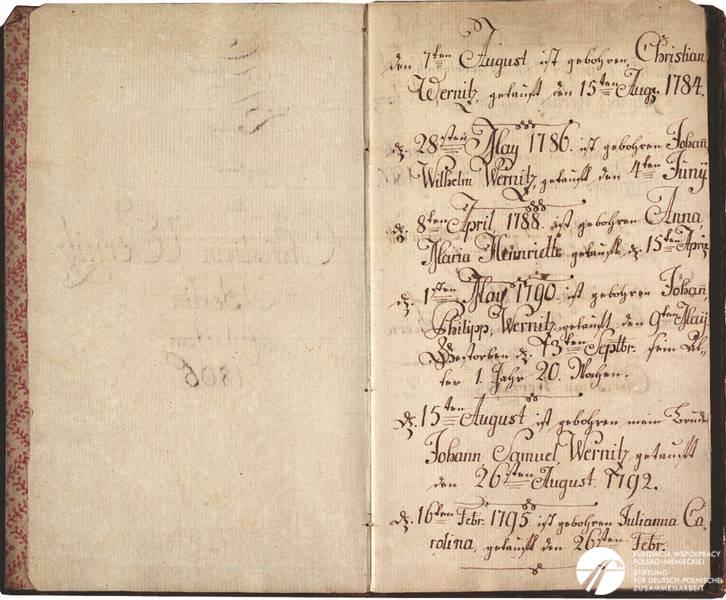 den 7ten August ist gebohren, Christian
Wernitz, getauft den 15ten Aug. 1784.
d. 28sten May 1786. ist gebohren Johañ
Wilhelm Wernitz, getauft den 4ten Juny
d. 8ten April, 1788. ist gebohren Anna,
Maria Heinriette getauft d. 15ten April
d. 1sten May 1790. ist gebohren Johañ,
Philipp, Wernitz, getauft den 9ten May.
Gestorben d. 13ten Septbr. sein Al-
ter 1. Jahr 20. Wochen.
d. 15ten August ist gebohren mein Bruder
Johann Samuel Wernitz, getauft
den 26sten August. 1792.
d. 16ten Febr. 1795. ist gebohren Julianna Ca-
rolina, getauft den 26sten Febr.
FUNDACJA WSPÓŁPRACY
POLSKO-NIEMIECKIEJ
STIFTUNG
FÜR DEUTSCH-POLNISCHE
ZUSAMMENARBEIT